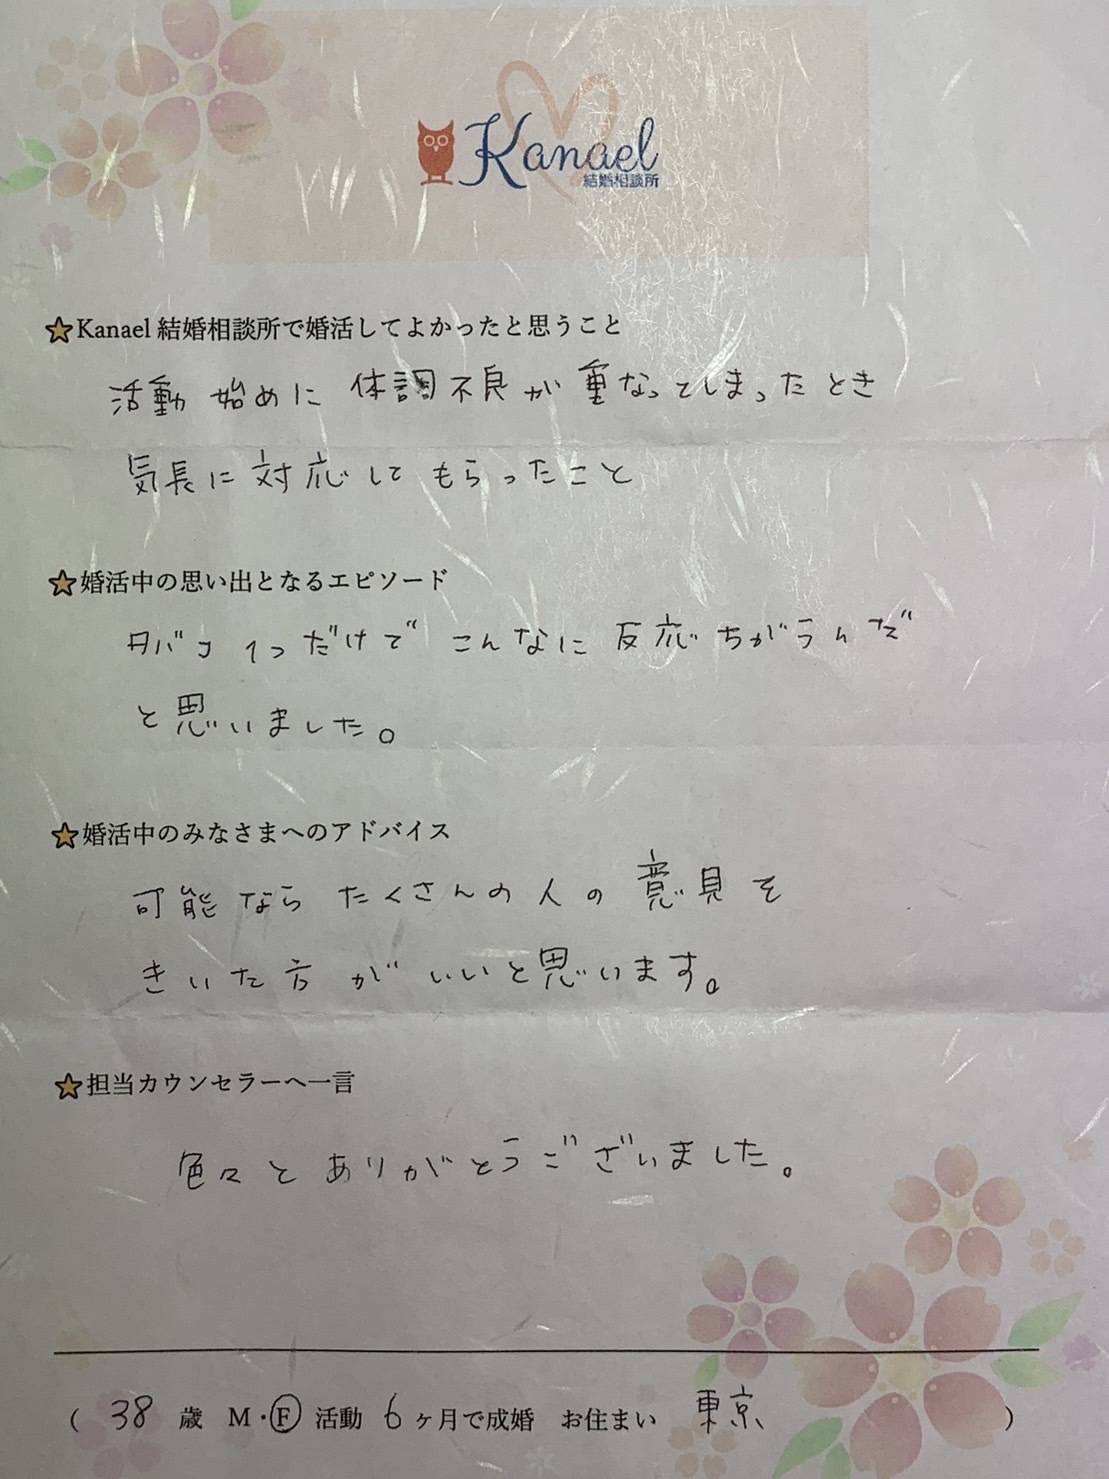 Kanael
結婚相談所
Kanael 結婚相談所で婚活してよかったと思うこと
活動 始めに 体調不良が 重なってしまったとき
気長に対応して もらったこと
婚活中の思い出となるエピソード
タバコ 1つだけで こんなに 反応ちがうんだ
と思いました。
婚活中のみなさまへのアドバイス
可能ならたくさんの人の意見を
きいた方がいいと思います。
担当カウンセラーへ一言
色々とありがとうございました。
( 38 歳 M・F 活動 6 ヶ月で成婚 お住まい 東京 )